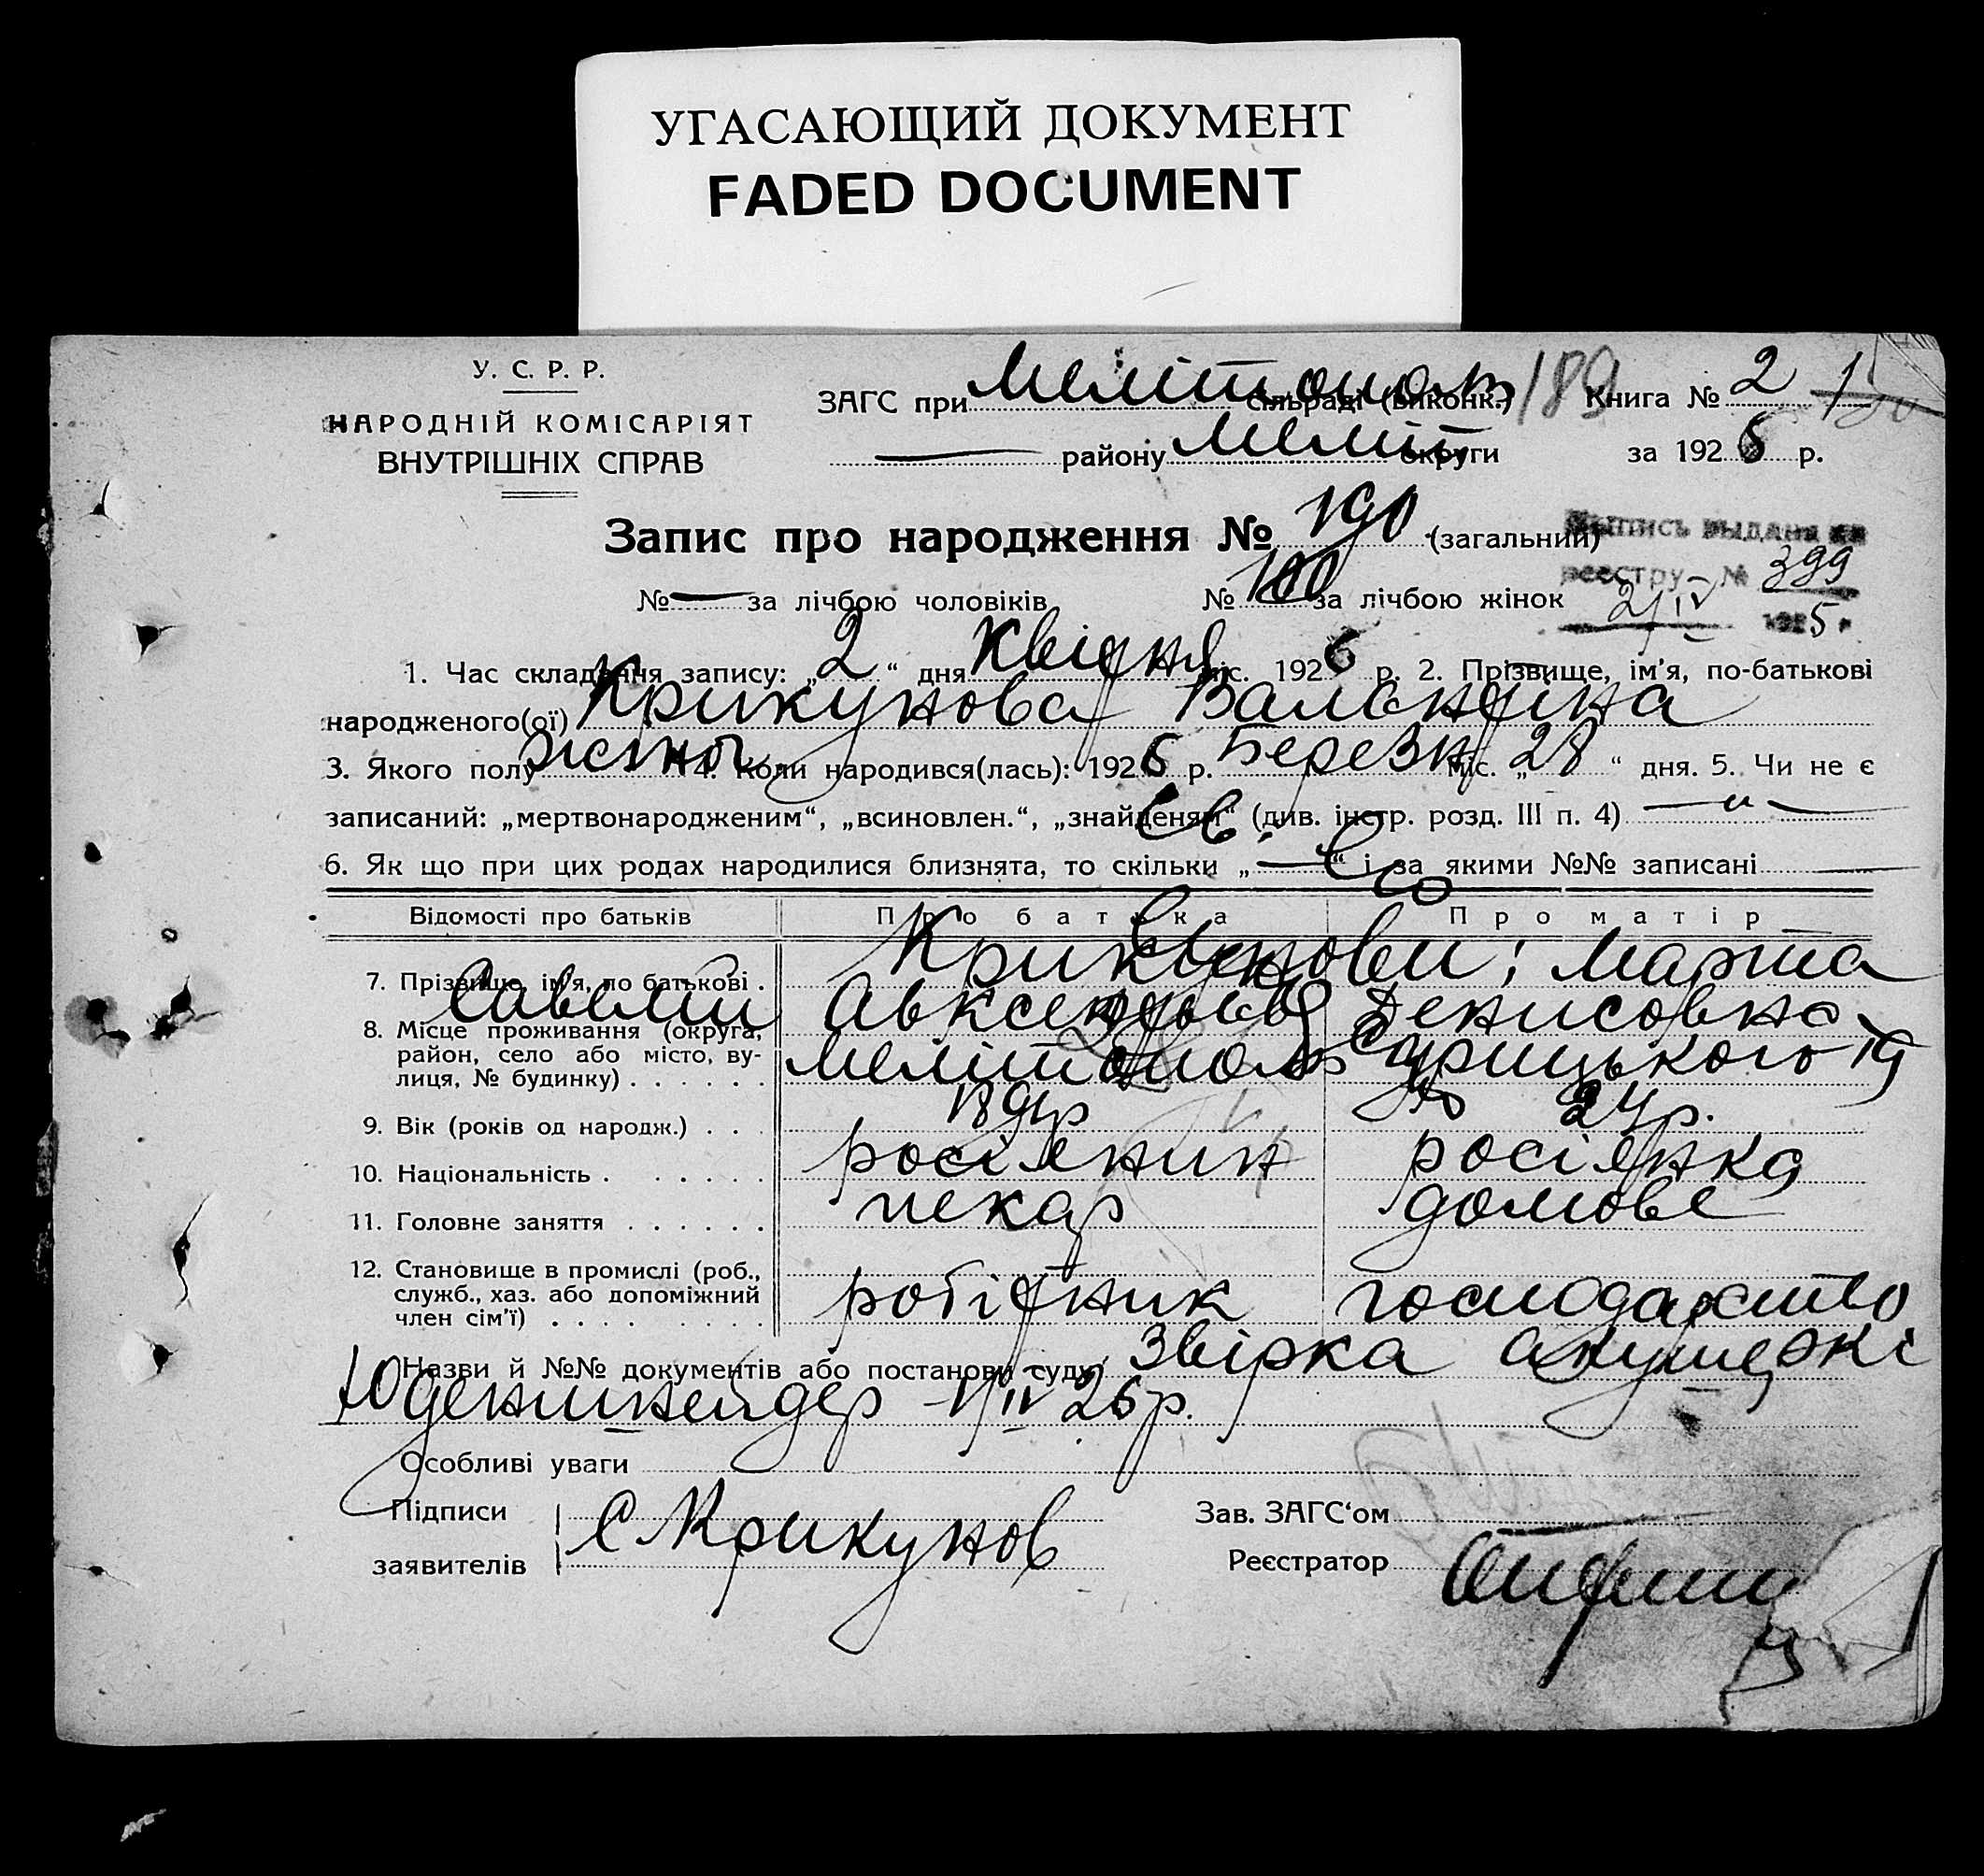 УГАСАЮЩИЙ ДОКУМЕНТ
FADED DOCUMENT
У. С. Р. Р.
НАРОДНІЙ КОМІСАРІЯТ
ВНУТРІШНІХ СПРАВ
ЗАГС при Мелітополь сільраді (виконк.) 189 Книга № 2
району Меліт округи за 1926 р.
Запис про народження № 190 (загальний)
Выпись выдана
реестру № 399
№ — за лічбою чоловіків № 100 за лічбою жінок 2/IV 192
1. Час складання запису: „2“ дня Квітня міс. 1926 р. 2. Прізвище, ім'я, по-батькові
народженого(ої) Крикунова Валентина
3. Якого полу жіно 4. Коли народився(лась): 1926 р. Березня міс. „28“ дня. 5. Чи не є
записаний: „мертвонародженим“, „всиновлен.“, „знайденям“ (див. інстр. розд. III п. 4) — „ —
6. Як що при цих родах народилися близнята, то скільки „—“ і за якими №№ записані —
Відомості про батьків Про батька Про матір
7. Прізвище, ім'я, по батькові . Крикунови; Марта
Савелий Авксентьев Денисовна
8. Місце проживання (округа,
район, село або місто, ву-
лиця, № будинку) . . . . . . Мелітополь Урицького 19
9. Вік (років од народж.) . . . 24 р.
10. Національність . . . . . . росіянин росіянка
11. Головне заняття . . . . . . пекар домове
12. Становище в промислі (роб.,
служб., хаз. або допоміжний
член сім'ї) . . . . . . . . робітник господарство
Назви й №№ документів або постанови суду Звірка акушерки
1/IV 26 р.
Особливі уваги
Підписи
заявителів С Крикунов
Зав. ЗАГС'ом
Реєстратор